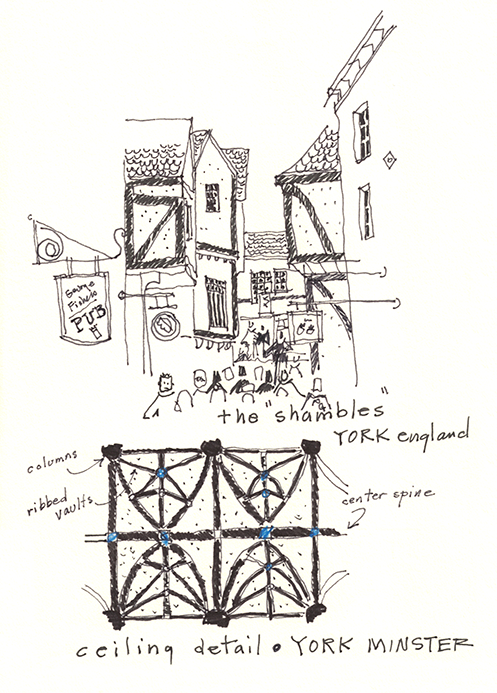 PUB
the "shambles"
YORK england
columns
ribbed
vaults
center spine
ceiling detail • YORK MINSTER